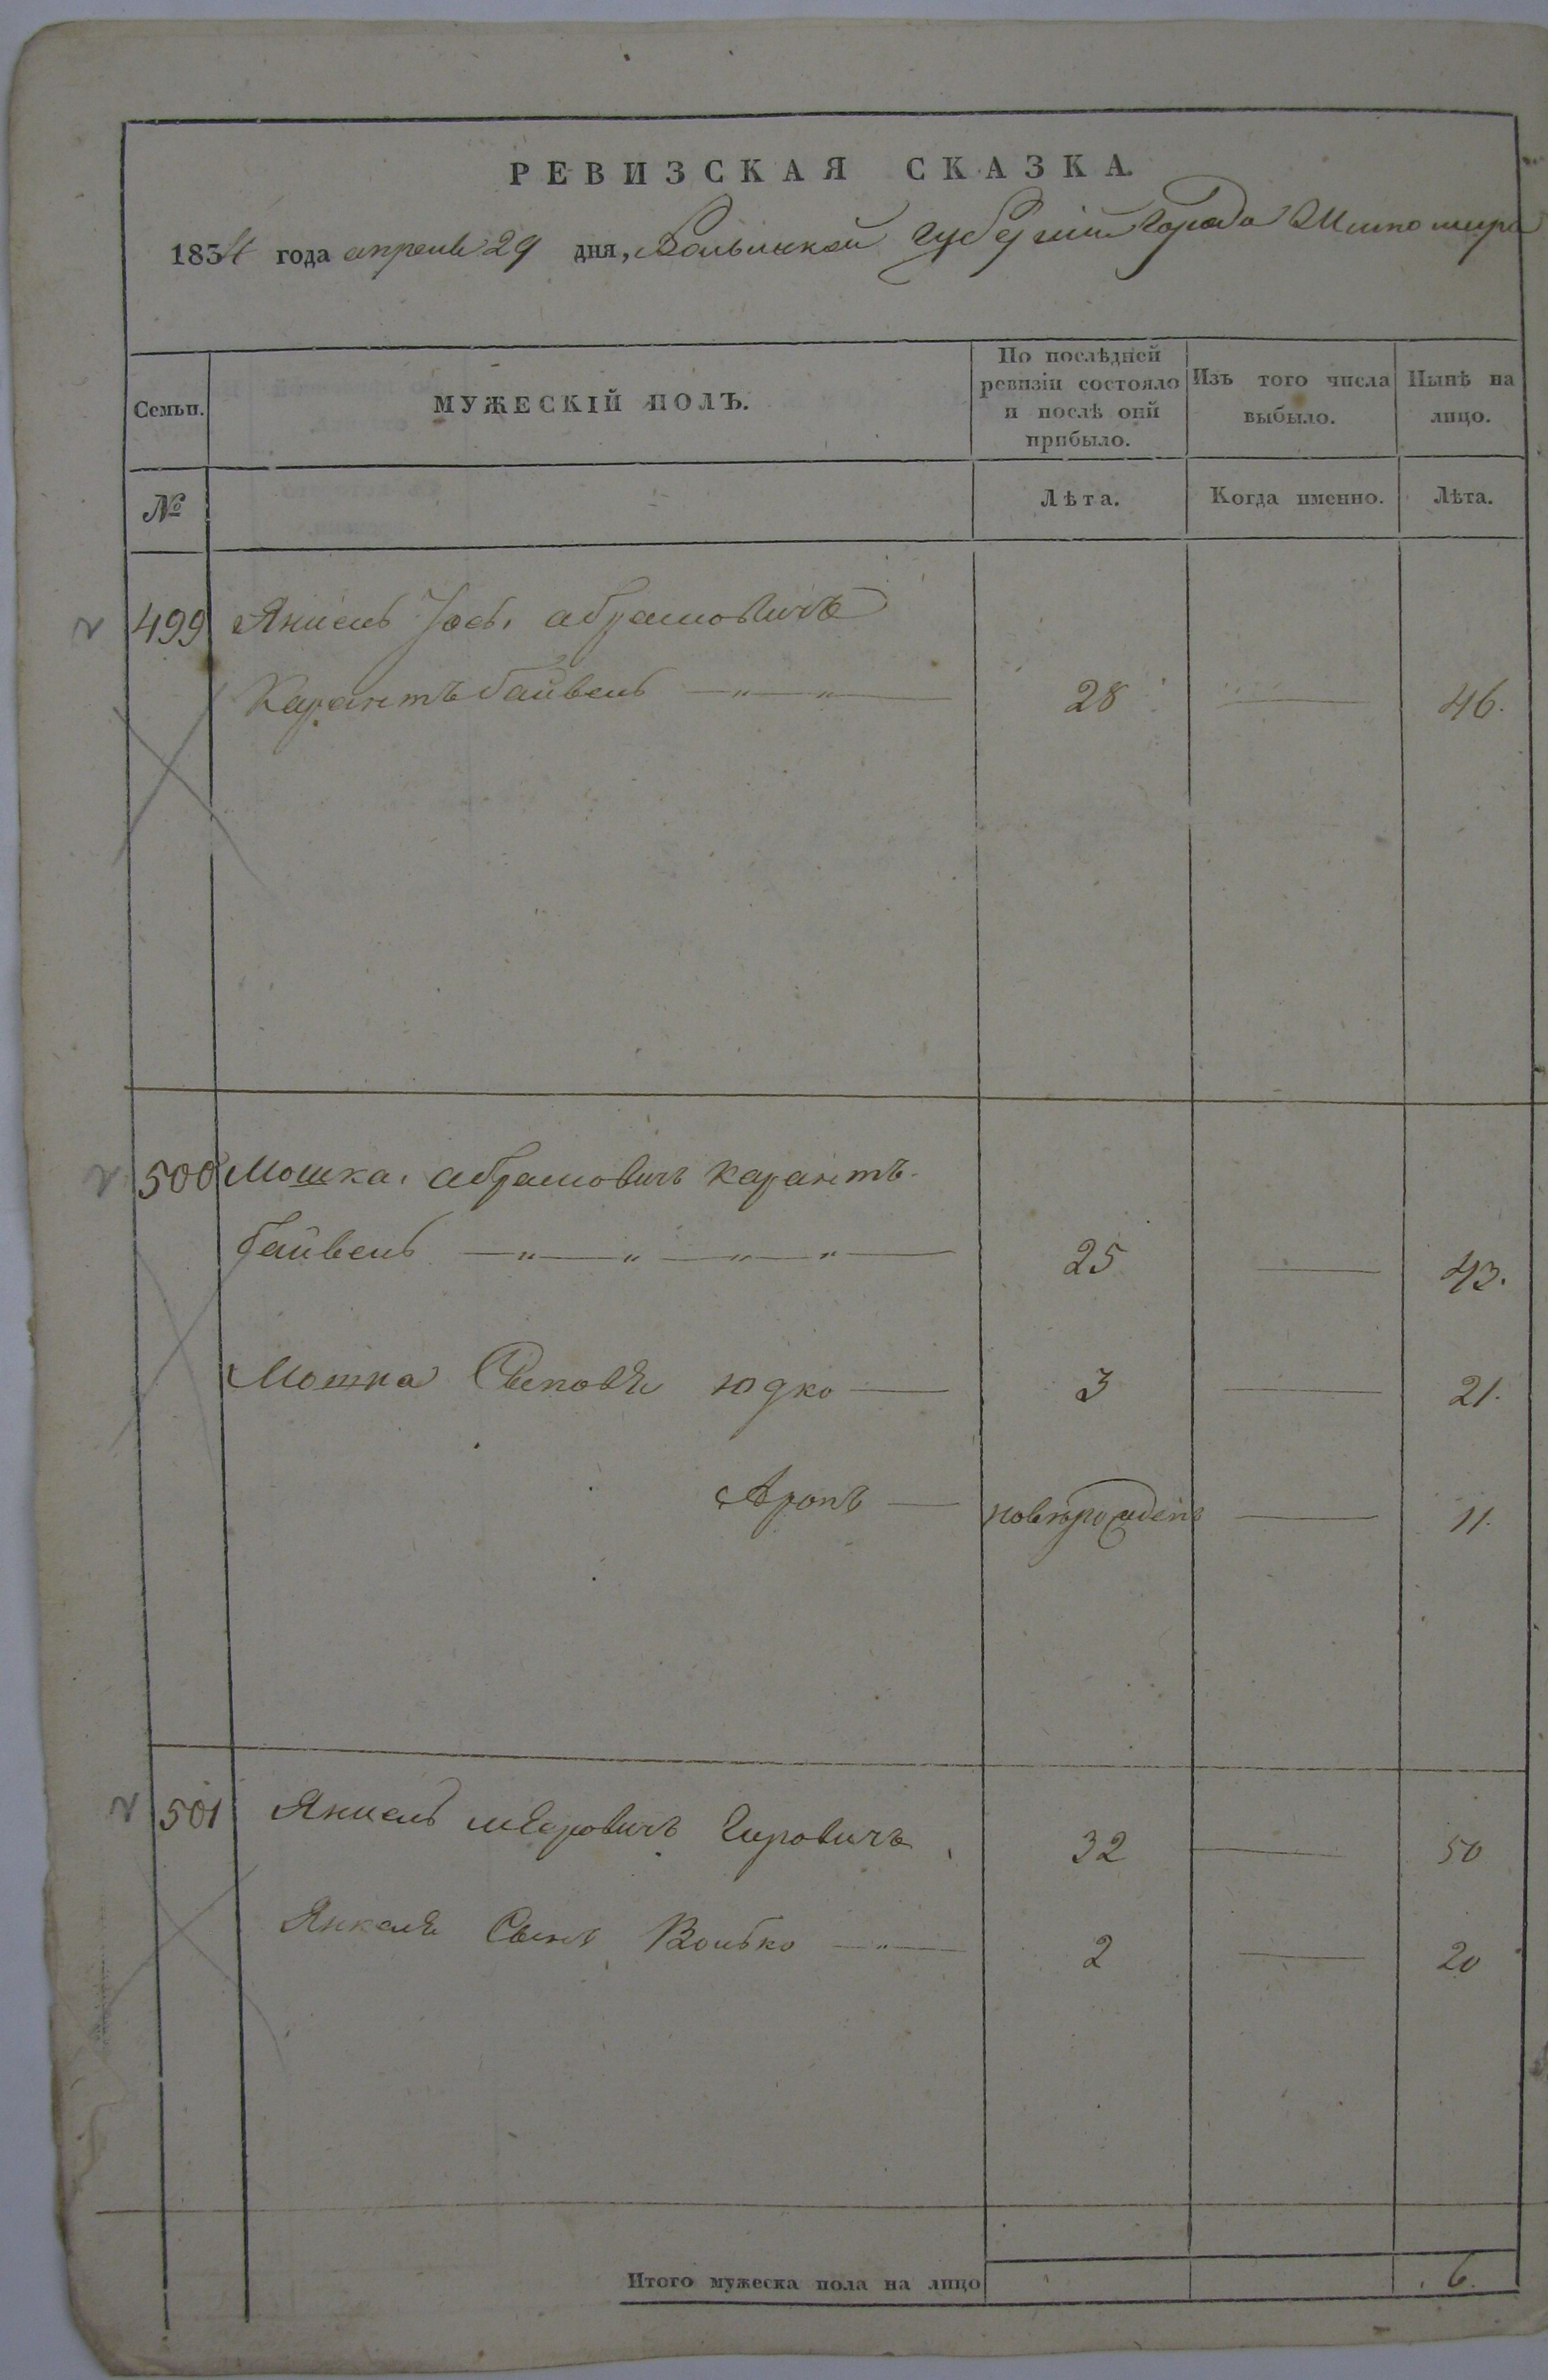 РЕВИЗСКАЯ СКАЗКА.
1834 года апреля 29 дня, Волынской Губернии Города Житомира
Семьи.
МУЖЕСКІЙ ПОЛЪ.
По послѣдней ревизіи состояло и послѣ оной прибыло.
Изъ того числа выбыло.
Нынѣ на лицо.
№
Лѣта.
Когда именно.
Лѣта.
499 Янкель Іос. Абрамовичъ
Карантъ байвель 28 46.
500 Мошка Абрамовичъ Карантъ
байвель 25 43.
Мошка Сыновья Юдко 3 21.
Аронъ новорожденъ 11.
501 Янкель Гировичъ 32 50
Янкеля Сынъ Волько 2 20
Итого мужеска пола на лицо 6.